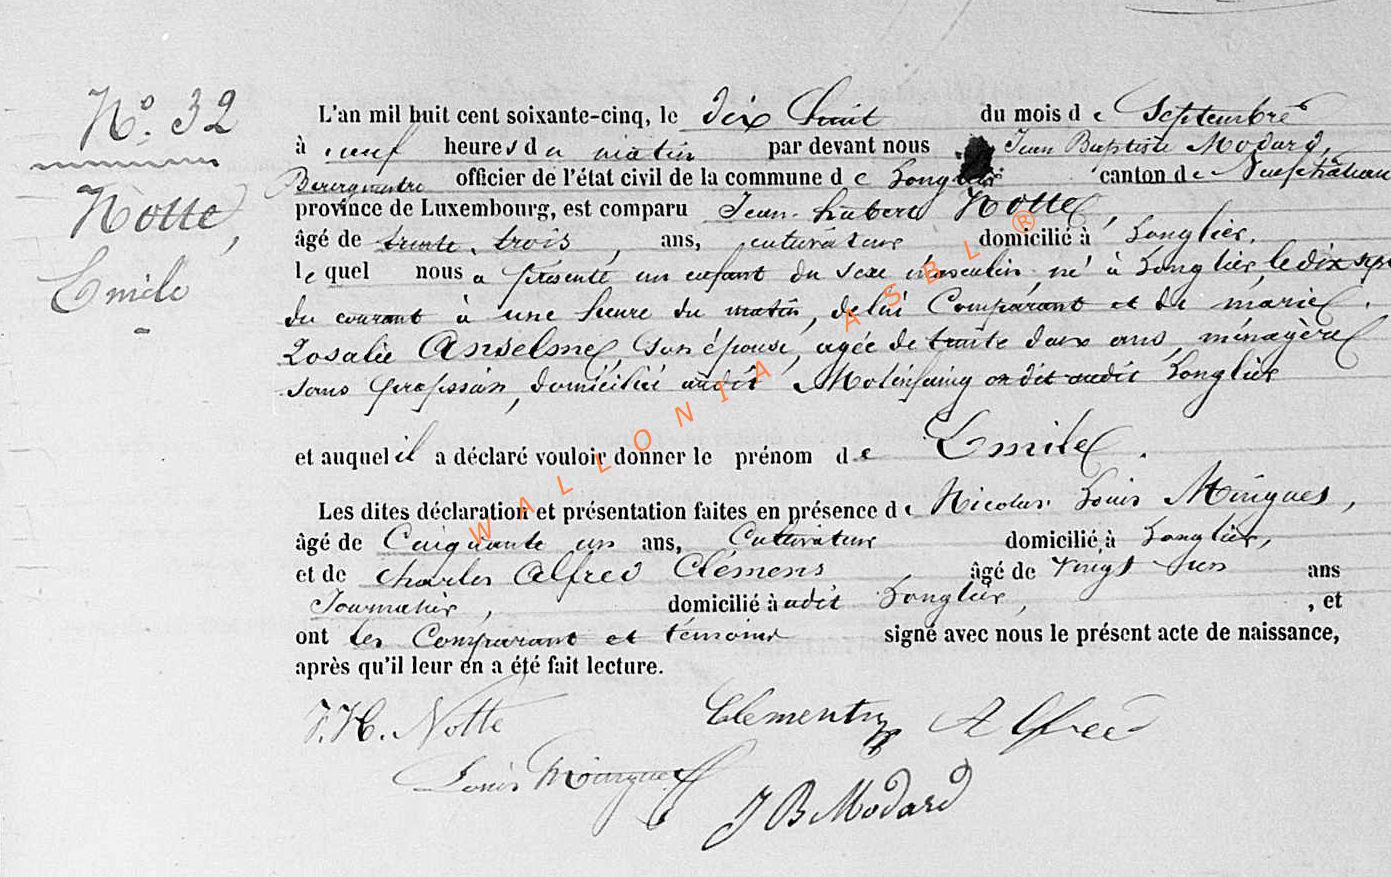 N° 32
Notte,
Emile
L'an mil huit cent soixante-cinq, le dix huit du mois de Septembre
à neuf heures du matin par devant nous Jean Baptiste Modard,
Bourgmestre officier de l'état civil de la commune de Longlier canton de Neufchâteau
province de Luxembourg, est comparu Jean hubert Notte,
âgé de trente trois ans, cultivateur domicilié à Longlier,
lequel nous a présenté un enfant du sexe masculin, né à Longlier, le dix sept
du courant à une heure du matin, de lui Comparant et de marie
Rosalie Anselme, son épouse, agée de trente deux ans, ménagère
sans profession, domiciliés audit Molinfaing audit Longlier
et auquel il a déclaré vouloir donner le prénom de Emile.
Les dites déclaration et présentation faites en présence de Nicolas Louis
âgé de Cinquante un ans, Cultivateur domicilié à Longlier,
et de charles Alfred Clémens âgé de vingt ans
Journalier, domicilié à udit Longlier, , et
ont les Comparant et témoins signé avec nous le présent acte de naissance,
après qu'il leur en a été fait lecture.
J. H. Notte Alfred
Louis
J B Modard
WALLONIA ASBL ®